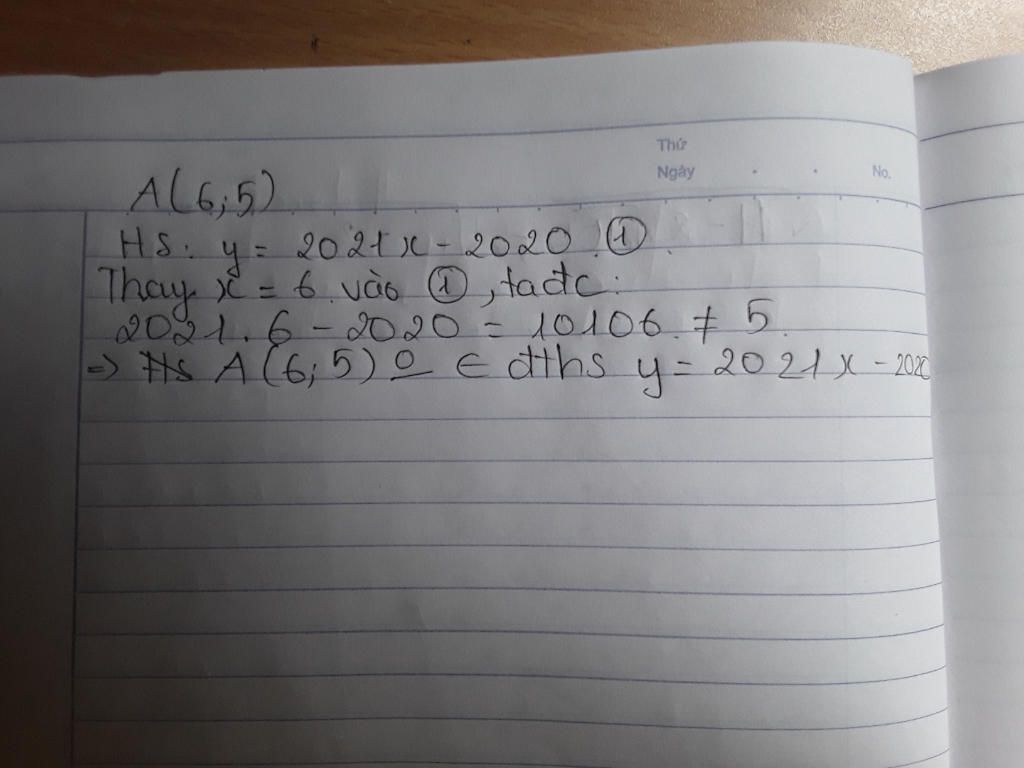 Thứ
Ngày . . No.
A(6;5)
HS: y = 2021x - 2020 ①
Thay x = 6 vào ①, ta đc:
2021.6 - 2020 = 10106 ≠ 5.
=> Hs A(6;5) o ∈ đths y = 2021x - 2020